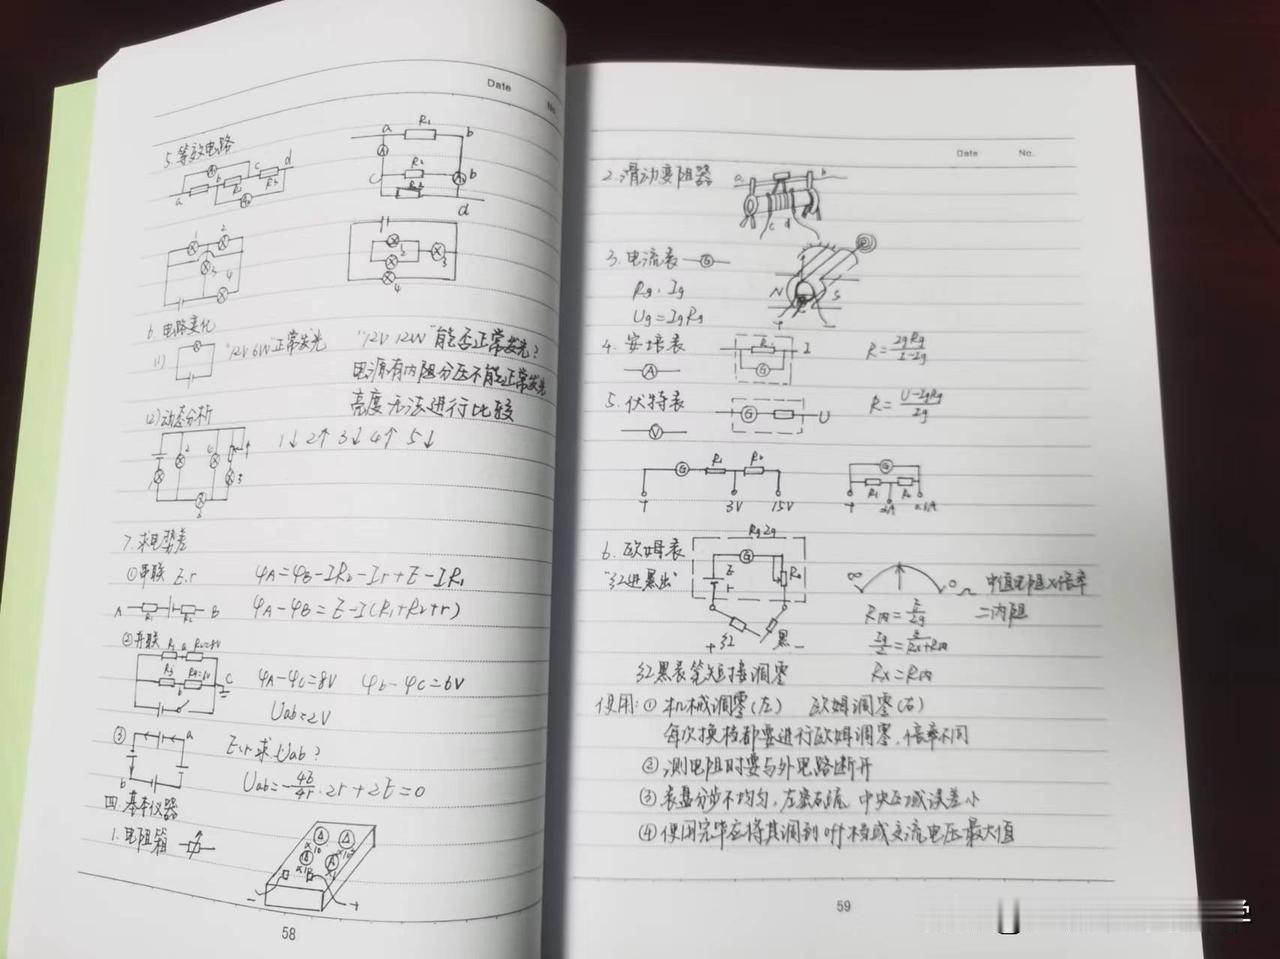 Date
No.
5.等效电路
a R₁ b
c d
a b R₂ R₃
C R₂ b
d
1 2
3 4
2 3
4
6.电路变化
(1) "12V 6W"正常发光 "12V 12W"能否正常发光?
电源有内阻分压不能正常发光
亮度无法进行比较
(2)动态分析
1↓ 2↑ 3↓ 4↑ 5↓
7.求电势差
①串联 E.r φA=φB-IR₂-Ir+E-IR₁
A R₁ R₂ B φA-φB=E-I(R₁+R₂+r)
②并联 R₁ a R₂=8V
R₃ R₄=6V C
b
φA-φC=8V φb-φC=6V
Uab=2V
③ a
b
E.r求Uab?
Uab=-4E/4r·2r+2E=0
四.基本仪器
1.电阻箱
- +
58
Date No.
2.滑动变阻器 a b
c d
3.电流表 G
Rg.Ig
Ug=IgRg
N S
+ -
4.安培表 R I R=IgRg/I-Ig
A G
5.伏特表 G U R=U-IgRg/Ig
V
G R₁ R₂
+ 3V 15V
G
R₁ R₂
+
Rg Ig
6.欧姆表 G
"红进黑出" E r R₀
∞ 0 Ω 中值电阻×倍率
=内阻
R内=E/Ig
+红 黑-
Ig/2=E/Rx+R内
红黑表笔短接调零 Rx=R内
使用:①机械调零(左) 欧姆调零(右)
每次换档都要进行欧姆调零.倍率不同
②测电阻时要与外电路断开
③表盘分步不均匀,左密右疏 中央区域误差小
④使用完毕应将其调到off档或交流电压最大值
59